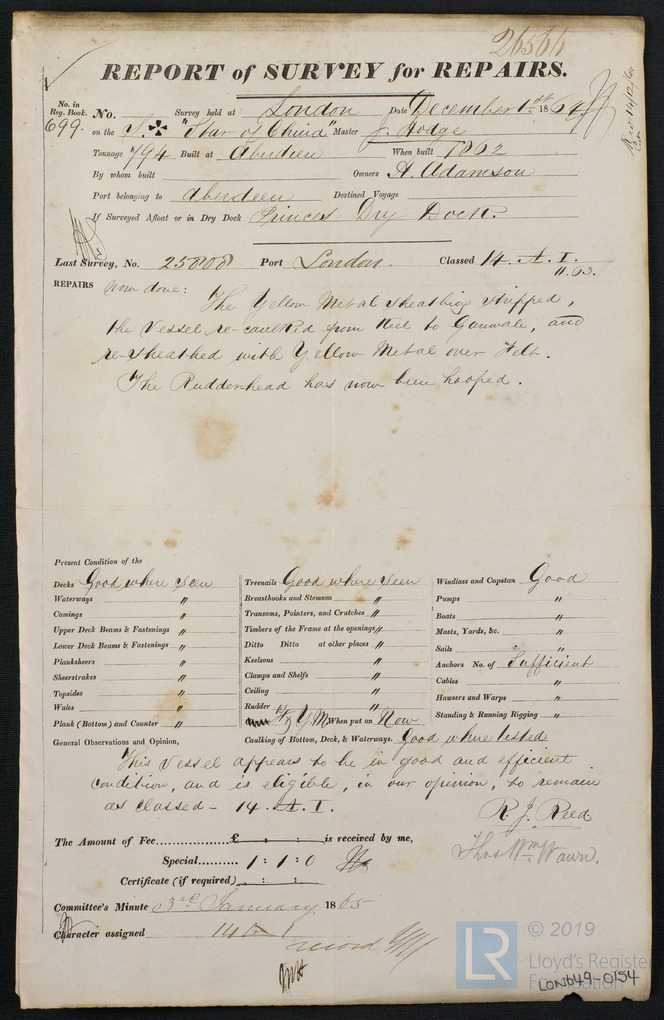 26566
REPORT of SURVEY for REPAIRS.
No. in Reg. Book. No. Survey held at London Date December 1st 1864
699. on the S. "Star of China" Master J. Hodge
Tonnage 794 Built at Aberdeen When built 1862
By whom built Owners A. Adamson
Port belonging to Aberdeen Destined Voyage
If Surveyed Afloat or in Dry Dock Princes Dry Dock.
Last Survey, No. 25808 Port London. Classed 14. A. I.
11.63.
REPAIRS now done: The Yellow Metal sheathing stripped,
the Vessel re-caulked from Keel to Gunwale, and
re-sheathed with Yellow Metal over Felt.
The Rudderhead has now been hooped.
Present Condition of the
Decks Good where seen
Waterways "
Comings "
Upper Deck Beams & Fastenings "
Lower Deck Beams & Fastenings "
Planksheers "
Sheerstrakes "
Topsides "
Wales "
Plank (Bottom) and Counter "
Treenails Good where seen
Breasthooks and Stemson "
Transoms, Pointers, and Crutches "
Timbers of the Frame at the openings "
Ditto Ditto at other places "
Keelsons "
Clamps and Shelfs "
Ceiling "
Rudder "
Y M When put on Now
Windlass and Capstan Good
Pumps "
Boats "
Masts, Yards, &c. "
Sails "
Anchors No. of Sufficient
Cables "
Hawsers and Warps "
Standing & Running Rigging "
General Observations and Opinion, Caulking of Bottom, Deck, & Waterways. Good where tested
This Vessel appears to be in good and efficient
condition, and is eligible, in our opinion, to remain
as classed - 14. A. I.
R. J. Reed
Thos Wm Wawn.
The Amount of Fee £ : : is received by me,
Special 1 : 1 : 0
Certificate (if required) : :
Committee's Minute 3rd January 1865
Character assigned 14 A 1
record
© 2019
LR Lloyd's Register
Foundation
LON649-0154